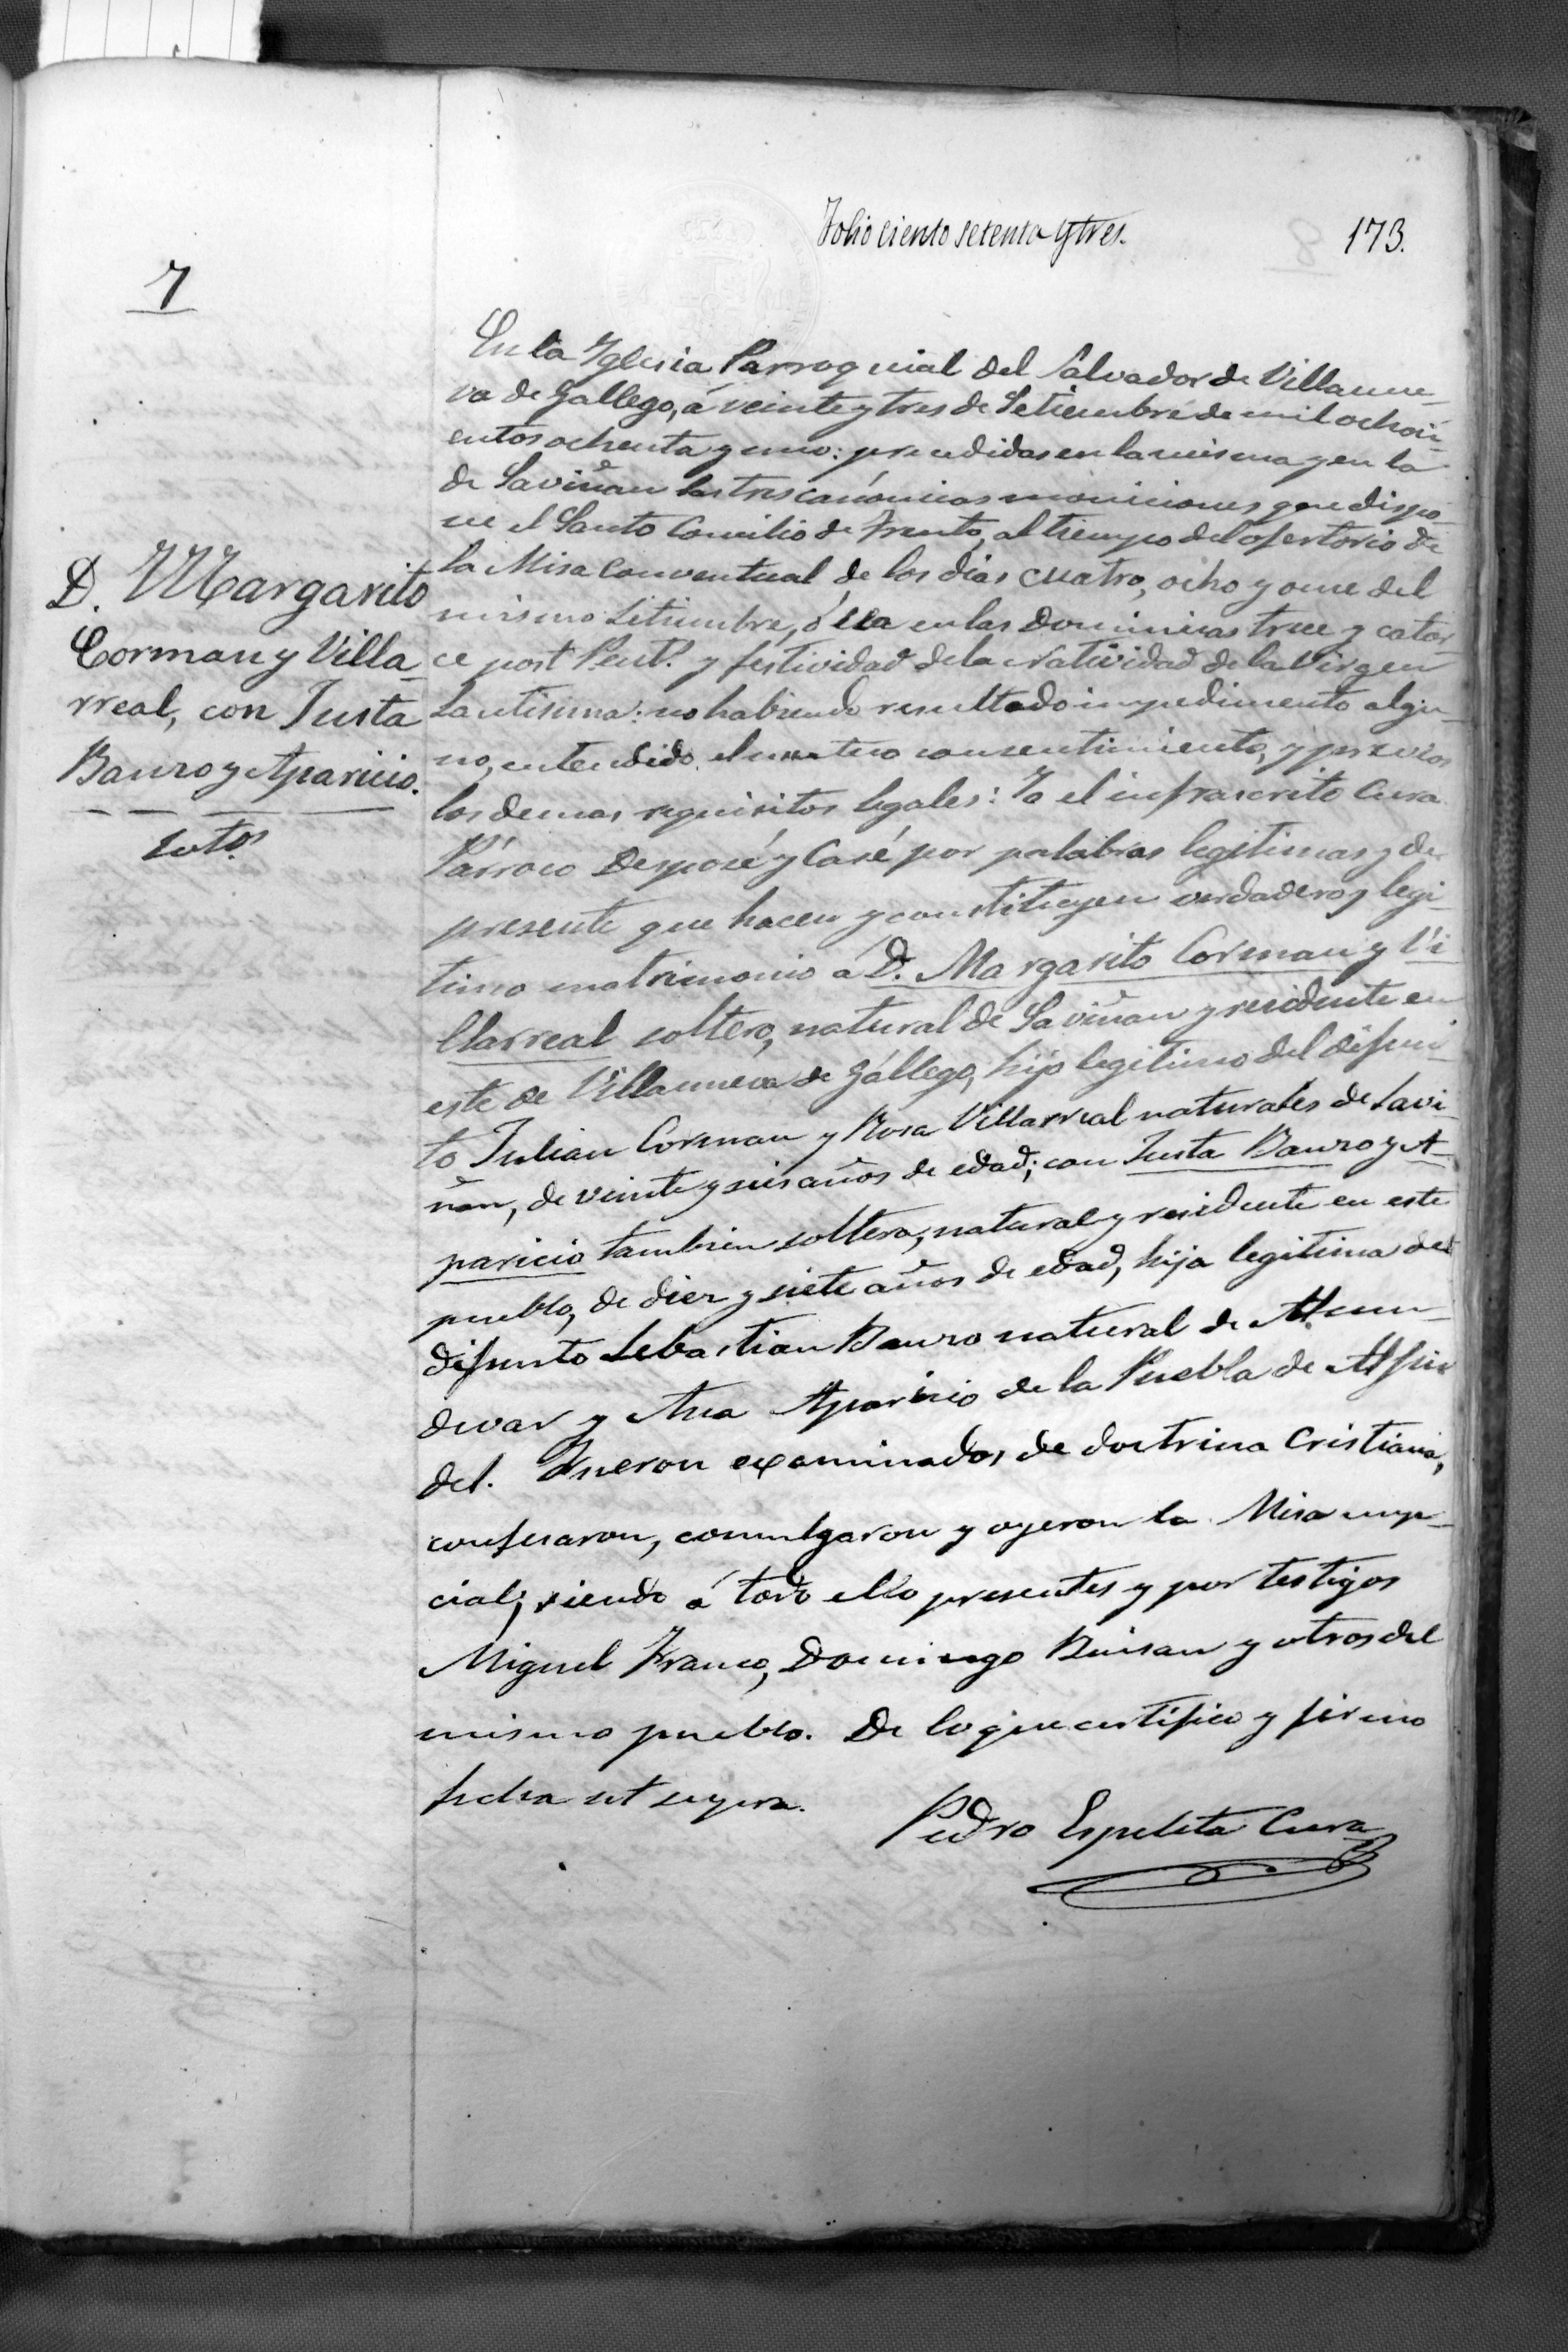 Folio ciento setenta y tres.
173.
7
D. Margarito
Corman y Villa-
rreal, con Justa
Bauro y Aparicio.
solto.s
En la Yglesia Parroquial del Salvador de Villanue-
va de Gallego, á veinte y tres de Setiembre de mil ochoci-
entos ochenta y uno: precedidas en la misma y en la
de Saviñan las tres canónicas moniciones que dispo-
ne el Santo Concilio de Trento, al tiempo del ofertorio de
la Misa Conventual de los dias cuatro, ocho y once del
mismo Setiembre, ó sea en las Dominicas trece y cator-
ce post Pent. y festividad de la Natividad de la Virgen
Santisima: no habiendo resultado impedimento algu-
no, entendido el mutuo consentimiento, y previos
los demas requisitos legales: Yo el infrascrito Cura
Párroco Desposé y Casé por palabras legitimas y de
presente que hacen y constituyen verdadero y legi-
timo matrimonio á D. Margarito Corman y Vi
llarreal soltero, natural de Saviñan y residente en
este de Villanueva de Gállego, hijo legitimo del difun-
to Julian Corman y Rosa Villarreal naturales de Savi-
ñan, de veinte y seis años de edad; con Justa Bauro y A-
paricio tambien soltera, natural y residente en este
pueblo, de diez y siete años de edad, hija legitima del
difunto Sebastian Bauro natural de Almu-
devar y Ana Aparicio de la Puebla de Alfin
del. Fueron examinados de doctrina Cristiana,
confesaron, comulgaron y oyeron la Misa nup-
cial, siendo á todo ello presentes y por testigos
Miguel Franco, Domingo Buisan y otros del
mismo pueblo. De lo que certifico y firmo
fecha ut supra.
Pedro Espeleta Cura